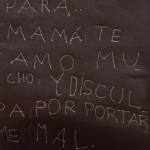 PARA..
MAMÁ: TE
AMO: MU
CHO: Y DISCUL
PA POR PORTAR
ME MAL.